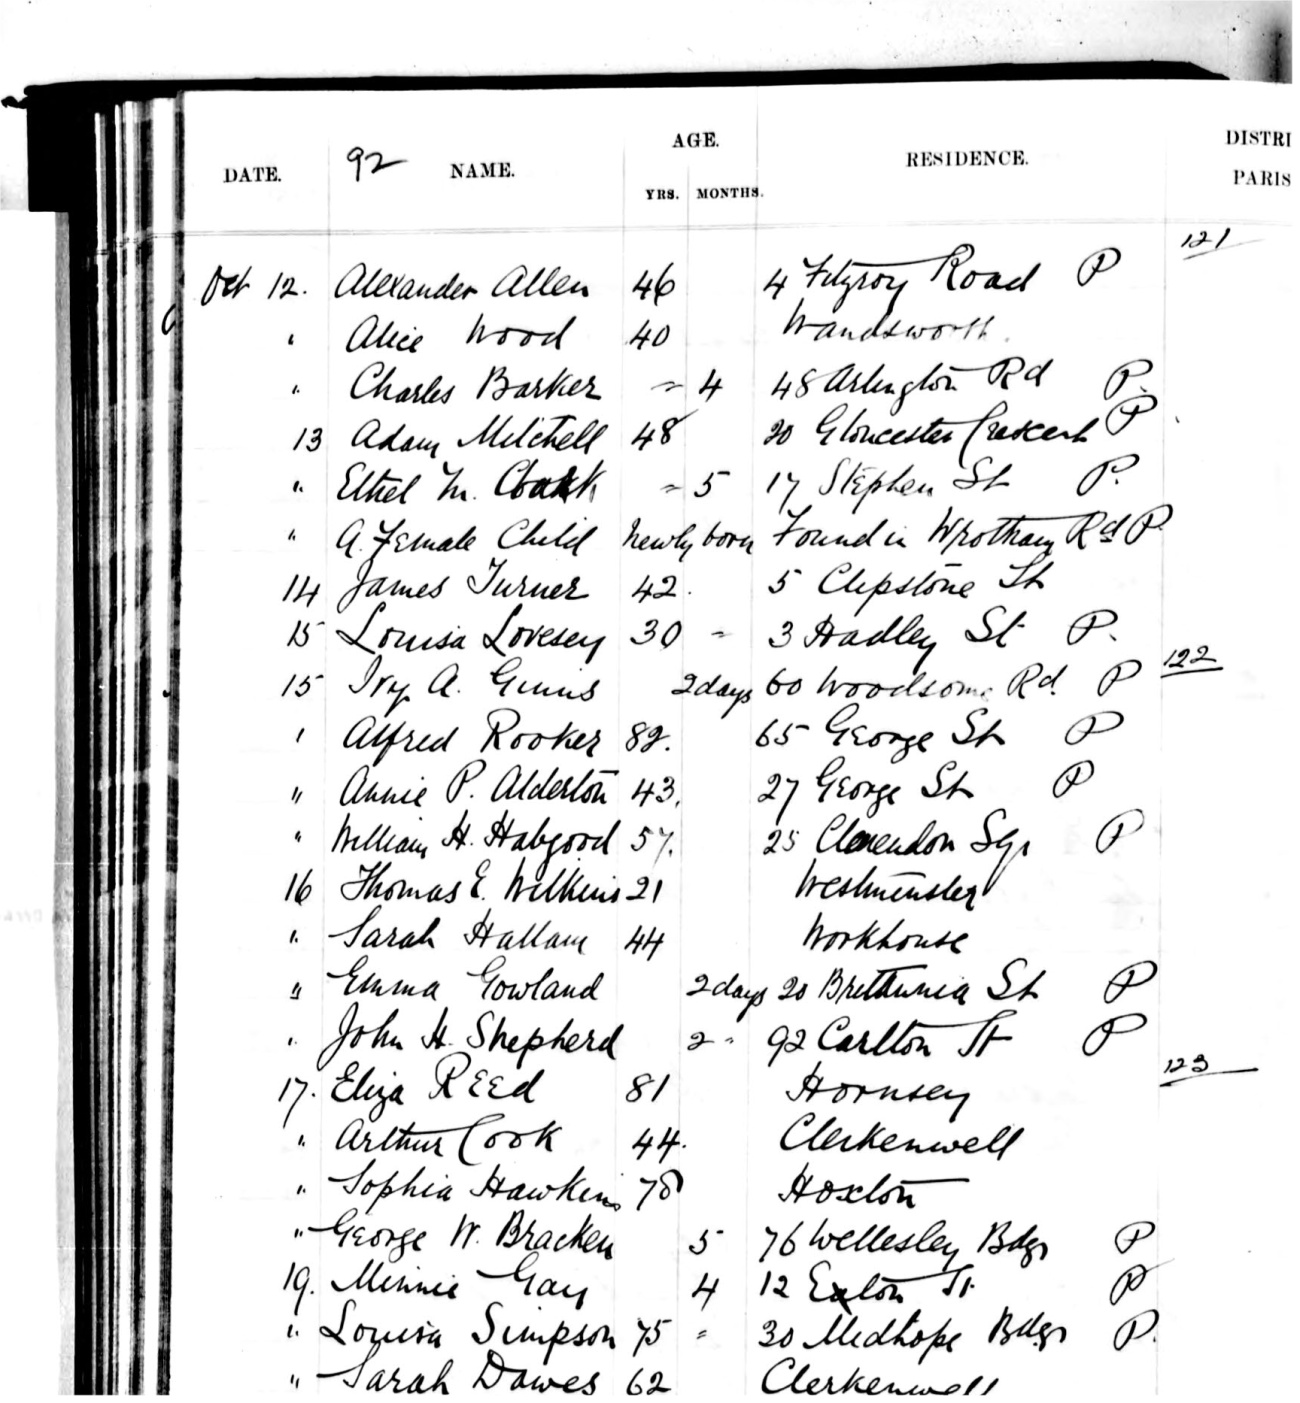 DISTRI
AGE.
92
DATE. NAME. RESIDENCE.
PARIS
YRS. MONTHS.
121
Oct 12. Alexander Allen 46 4 Fitzroy Road P
" Alice Wood 40 Wandsworth
" Charles Barker " 4 48 Arlington Rd P.
13 Adam Mitchell 48 20 Gloucester Crescent P
" Ethel M. " 5 17 Stephen St P.
" A. Female Child Newly born Found in Wrotham Rd P.
14 James Turner 42. 5 Clipstone St
15 Louisa Lovesey 30 " 3 Hadley St P.
122
15 Ivy A. 2 days 60 Woodsome Rd. P
" Alfred Rooker 82. 65 George St P
" Annie P. Alderton 43. 27 George St P
" William H. Habgood 57. 25 Clarendon Sqr P
16 Thomas E. Wilkins 21 Westminster
" Sarah Hallam 44 Workhouse
" Emma Gowland 2 days 20 Brittania St P
" John H. Shepherd 2 " 92 Carlton St P
123
17. Eliza REEd 81 Hornsey
" Arthur Cook 44. Clerkenwell
" Sophia Hawkins 78 Hoxton
" George W. Bracken 5 76 Wellesley Bdgs P
19. Minnie Gay 4 12 St P
" Louisa Simpson 75 " 30 Medhope Bdgs P.
" Sarah Dawes 62 Clerkenwell